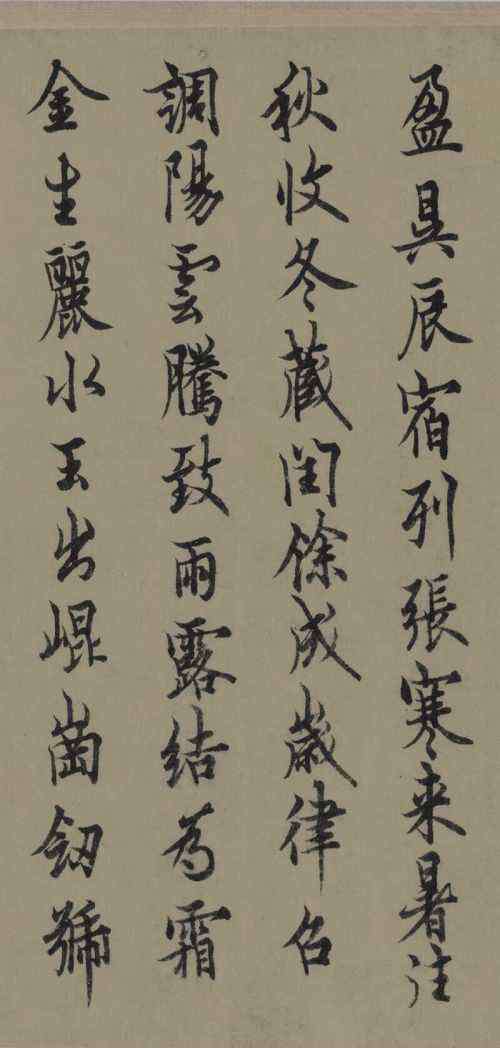 盈昃辰宿列張寒来暑往
秋收冬蔵閏餘成歲律召
調陽雲騰致雨露結為霜
金生麗水玉出崐崗劒號